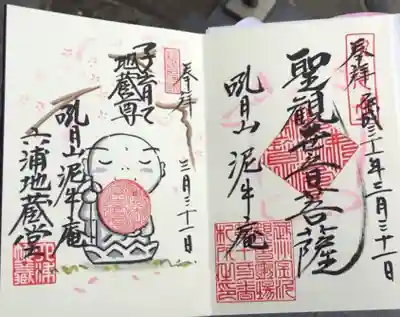 奉拝
平成三十一年三月三十一日
聖観世音菩薩
吼月山 泥牛庵
奉拝
三月三十一日
子育て
地蔵尊
吼月山 泥牛庵
六浦地蔵堂